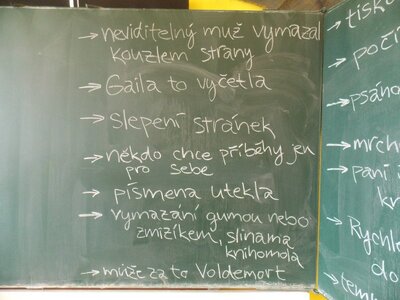 → neviditelný muž vymazal
kouzlem strany
→ Gaila to vyčetla
→ slepení stránek
→ někdo chce příběhy jen
pro sebe
→ písmena utekla
→ vymazání gumou nebo
zmizíkem, slinama
knihomola
→ může za to Voldemort
→ tisk
→ počí
→ psáno
→ mrch
→ paní
kn
→ Rychle
do